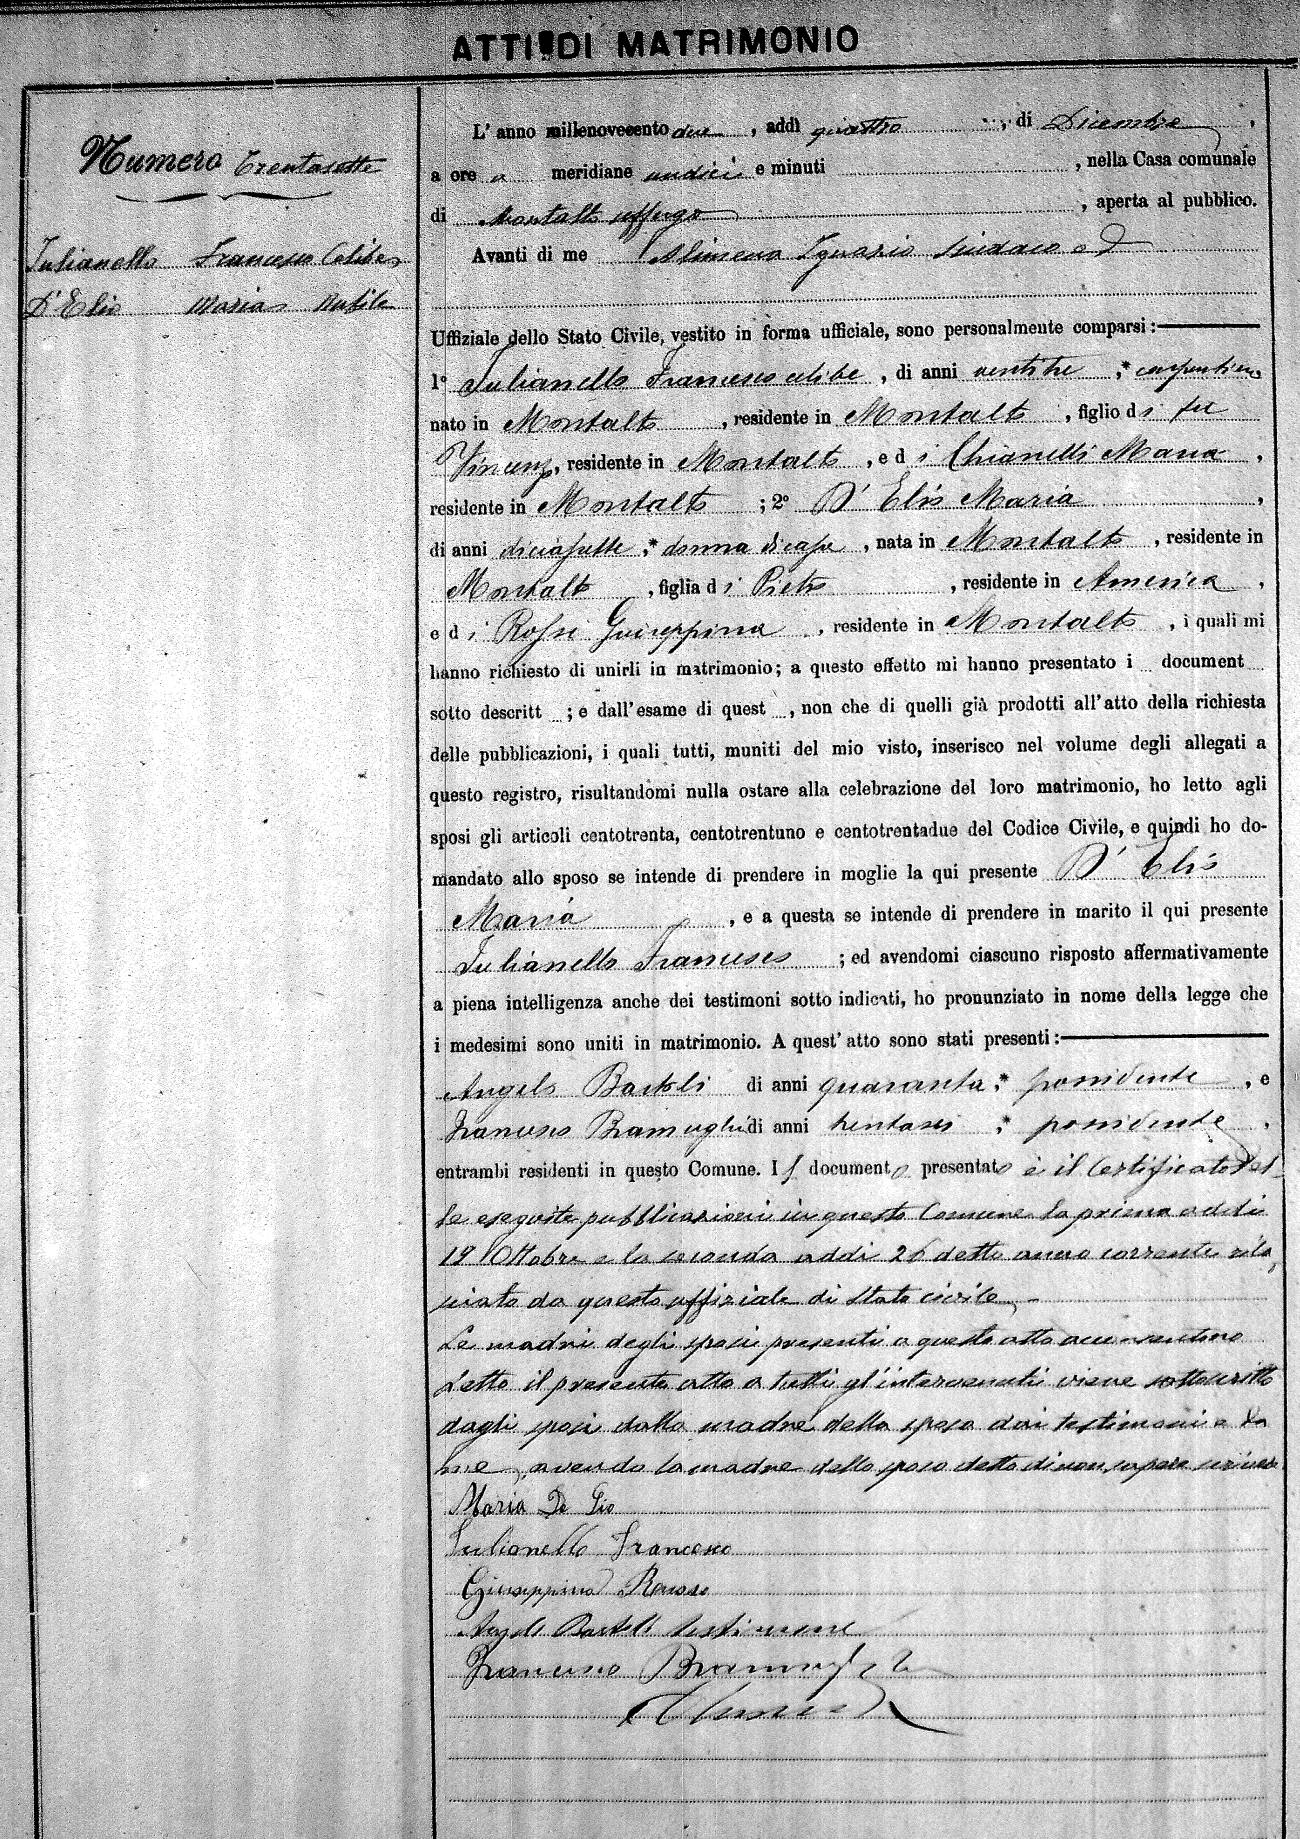 ATTI DI MATRIMONIO
Numero Trentasette
Iulianello Francesco Celibe
D'Elio Maria Nubile
L'anno millenovecento due, addì quattro, di Dicembre,
a ore a meridiane undici e minuti , nella Casa comunale
di Montalto uffugo , aperta al pubblico.
Avanti di me Alimena Ignazio Sindaco ed
Uffiziale dello Stato Civile, vestito in forma ufficiale, sono personalmente comparsi:
1º Iulianello Francesco celibe, di anni ventitre,
nato in Montalto, residente in Montalto, figlio di fu
Vincenzo, residente in Montalto, e di Chianelli Maria,
residente in Montalto; 2º D'Elio Maria,
di anni diciassette, * donna di casa, nata in Montalto, residente in
Montalto, figlia di Pietro, residente in America,
e di Rossi Giuseppina, residente in Montalto, i quali mi
hanno richiesto di unirli in matrimonio; a questo effetto mi hanno presentato i document
sotto descritt ; e dall'esame di quest , non che di quelli già prodotti all'atto della richiesta
delle pubblicazioni, i quali tutti, muniti del mio visto, inserisco nel volume degli allegati a
questo registro, risultandomi nulla ostare alla celebrazione del loro matrimonio, ho letto agli
sposi gli articoli centotrenta, centotrentuno e centotrentadue del Codice Civile, e quindi ho do-
mandato allo sposo se intende di prendere in moglie la qui presente D'Elio
Maria, e a questa se intende di prendere in marito il qui presente
Iulianello Francesco; ed avendomi ciascuno risposto affermativamente
a piena intelligenza anche dei testimoni sotto indicati, ho pronunziato in nome della legge che
i medesimi sono uniti in matrimonio. A quest'atto sono stati presenti:
Angelo Bartoli di anni quaranta, * possidente, e
Francesco di anni trentasei, * possidente,
entrambi residenti in questo Comune. Il documento presentato è il Certificato del
le eseguite pubblicazioni in questo Comune la prima addì
19 Ottobre e la seconda addì 26 detto anno corrente rila
sciato da questo uffiziale di Stato civile.
Le madri degli sposi presenti a questo atto acconsentono
Letto il presente atto a tutti gl'intervenuti viene sottoscritto
dagli sposi dalla madre della sposa dai testimoni e da
me, avendo la madre dello sposo detto di non sapere scrivere
Maria De Lio
Iulianello Francesco
Giuseppina Rosso
Angelo Bartoli testimone
Francesco
Alimena